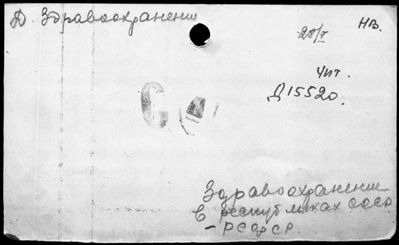 Д. Здравоохранение
28/V НВ.
Чит.
Д 15520.
С
Здравоохранение
в республиках СССР
- РСФСР.